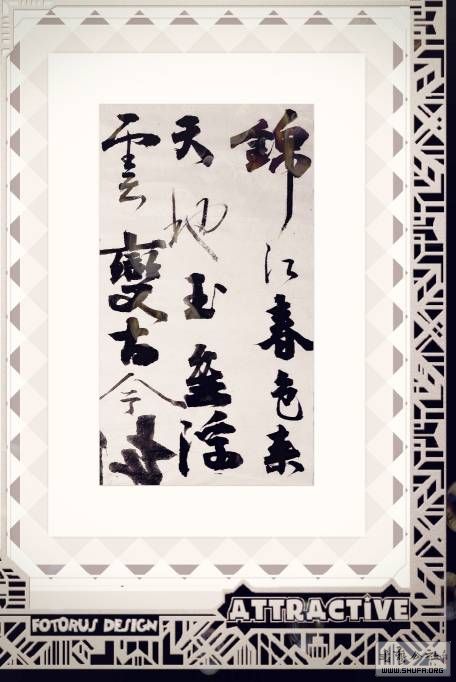 錦江春色来
天地玉壘浮
雲變古今
ATTRACTiVE
FOTORUS DESIGN
WWW.SHUFA.ORG